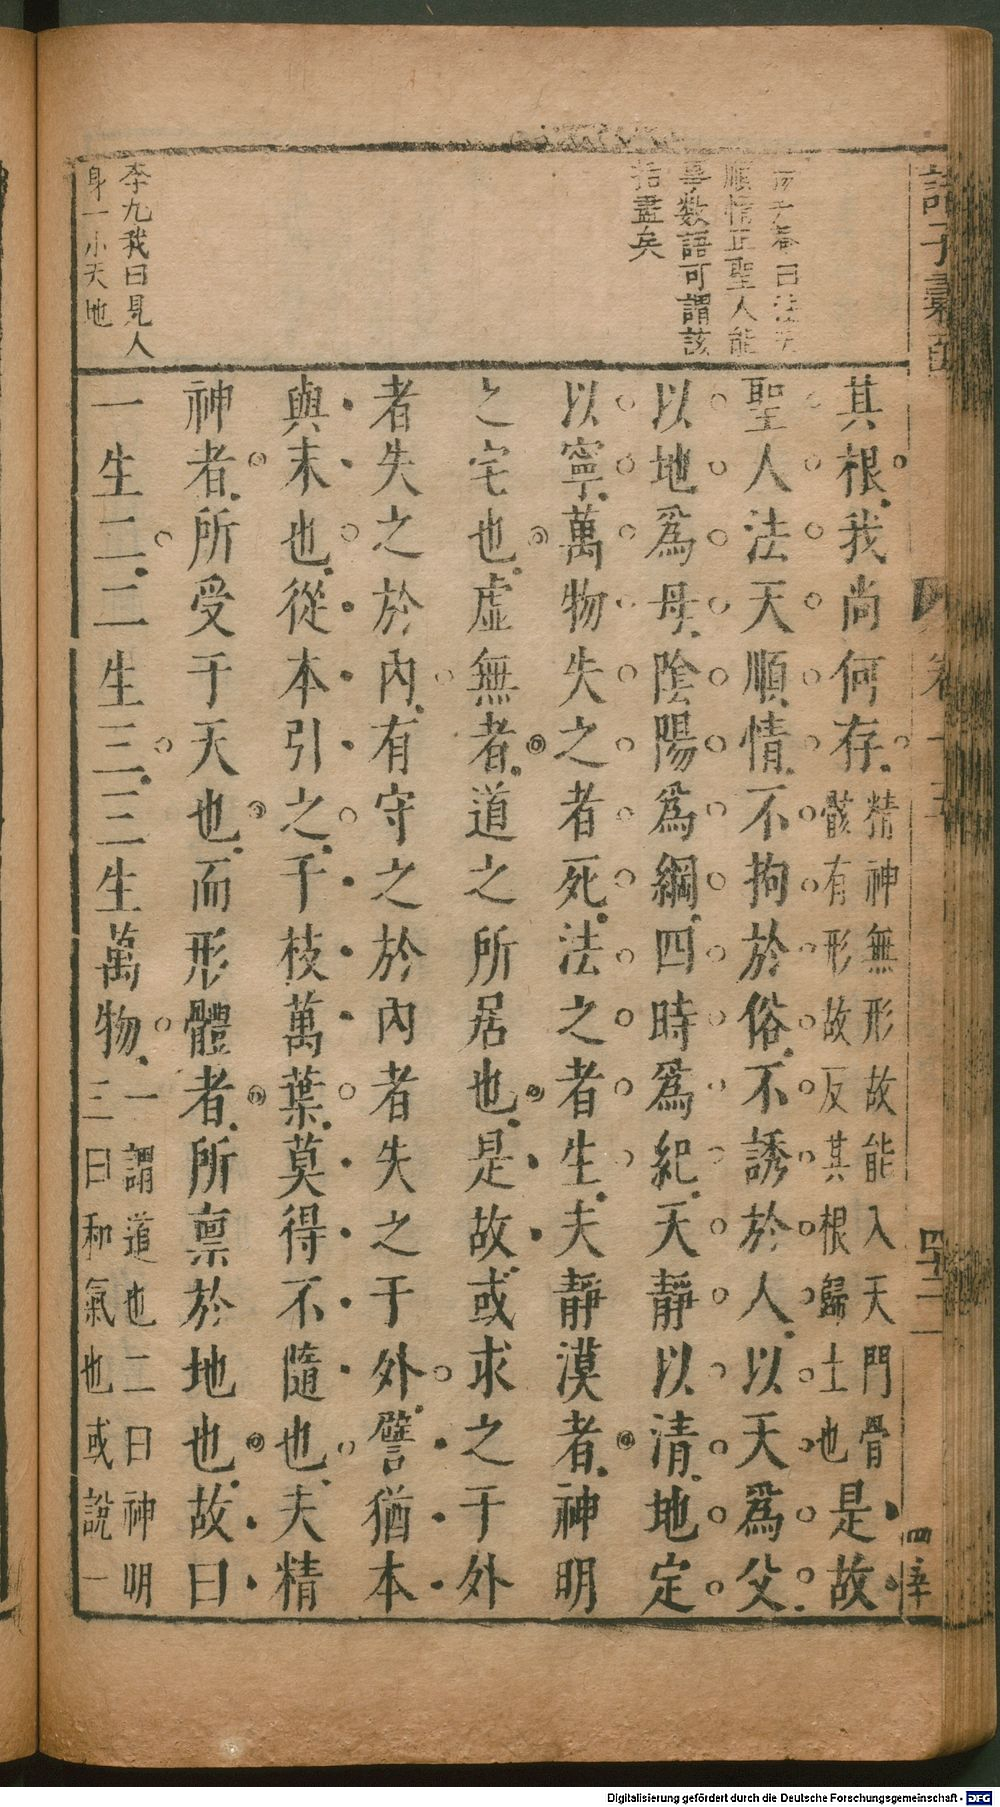 曰法天
順情正聖人能
事数語可謂該
括盡矣
李九我曰見人
身一小天地
其根我尚何存精神無形故能入天門骨
骸有形故反其根歸土也是故
聖人法天順情不拘於俗不誘於人以天爲父
以地爲母陰陽爲綱四時爲紀天靜以清地定
以寧萬物失之者死法之者生夫靜漠者神明
之宅也虚無者道之所居也是故或求之于外
者失之於內有守之於內者失之于外譬猶本
與末也從本引之千枝萬葉莫得不隨也夫精
神者所受于天也而形體者所禀於地也故曰
一生二二生三三生萬物一謂道也二曰神明
三曰和氣也或說一
卷十五
四十二
Digitalisierung gefördert durch die Deutsche Forschungsgemeinschaft - DFG